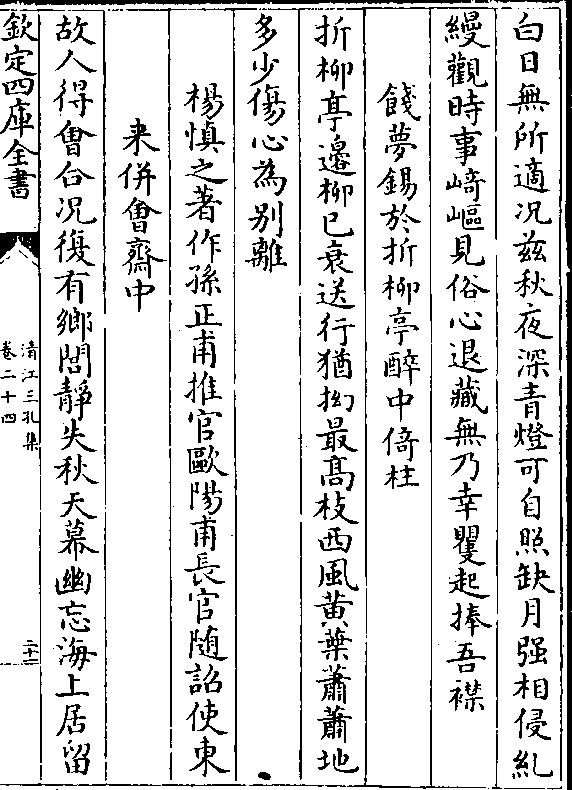 白日無所適况兹秋夜深青燈可自照缺月强相侵糺
縵觀時事﨑嶇見俗心退藏無乃幸矍起捧吾襟
餞夢錫於折柳亭醉中倚柱
折柳亭邉柳已衰送行猶拗最髙枝西風黄葉蕭蕭地
多少傷心為别離
楊慎之著作孫正甫推官歐陽甫長官随詔使東
来併㑹齋中
故人得㑹合况復有鄉閭靜失秋天幕幽忘海上居留
欽定四庫全書
清江三孔集
卷二十四
二十二